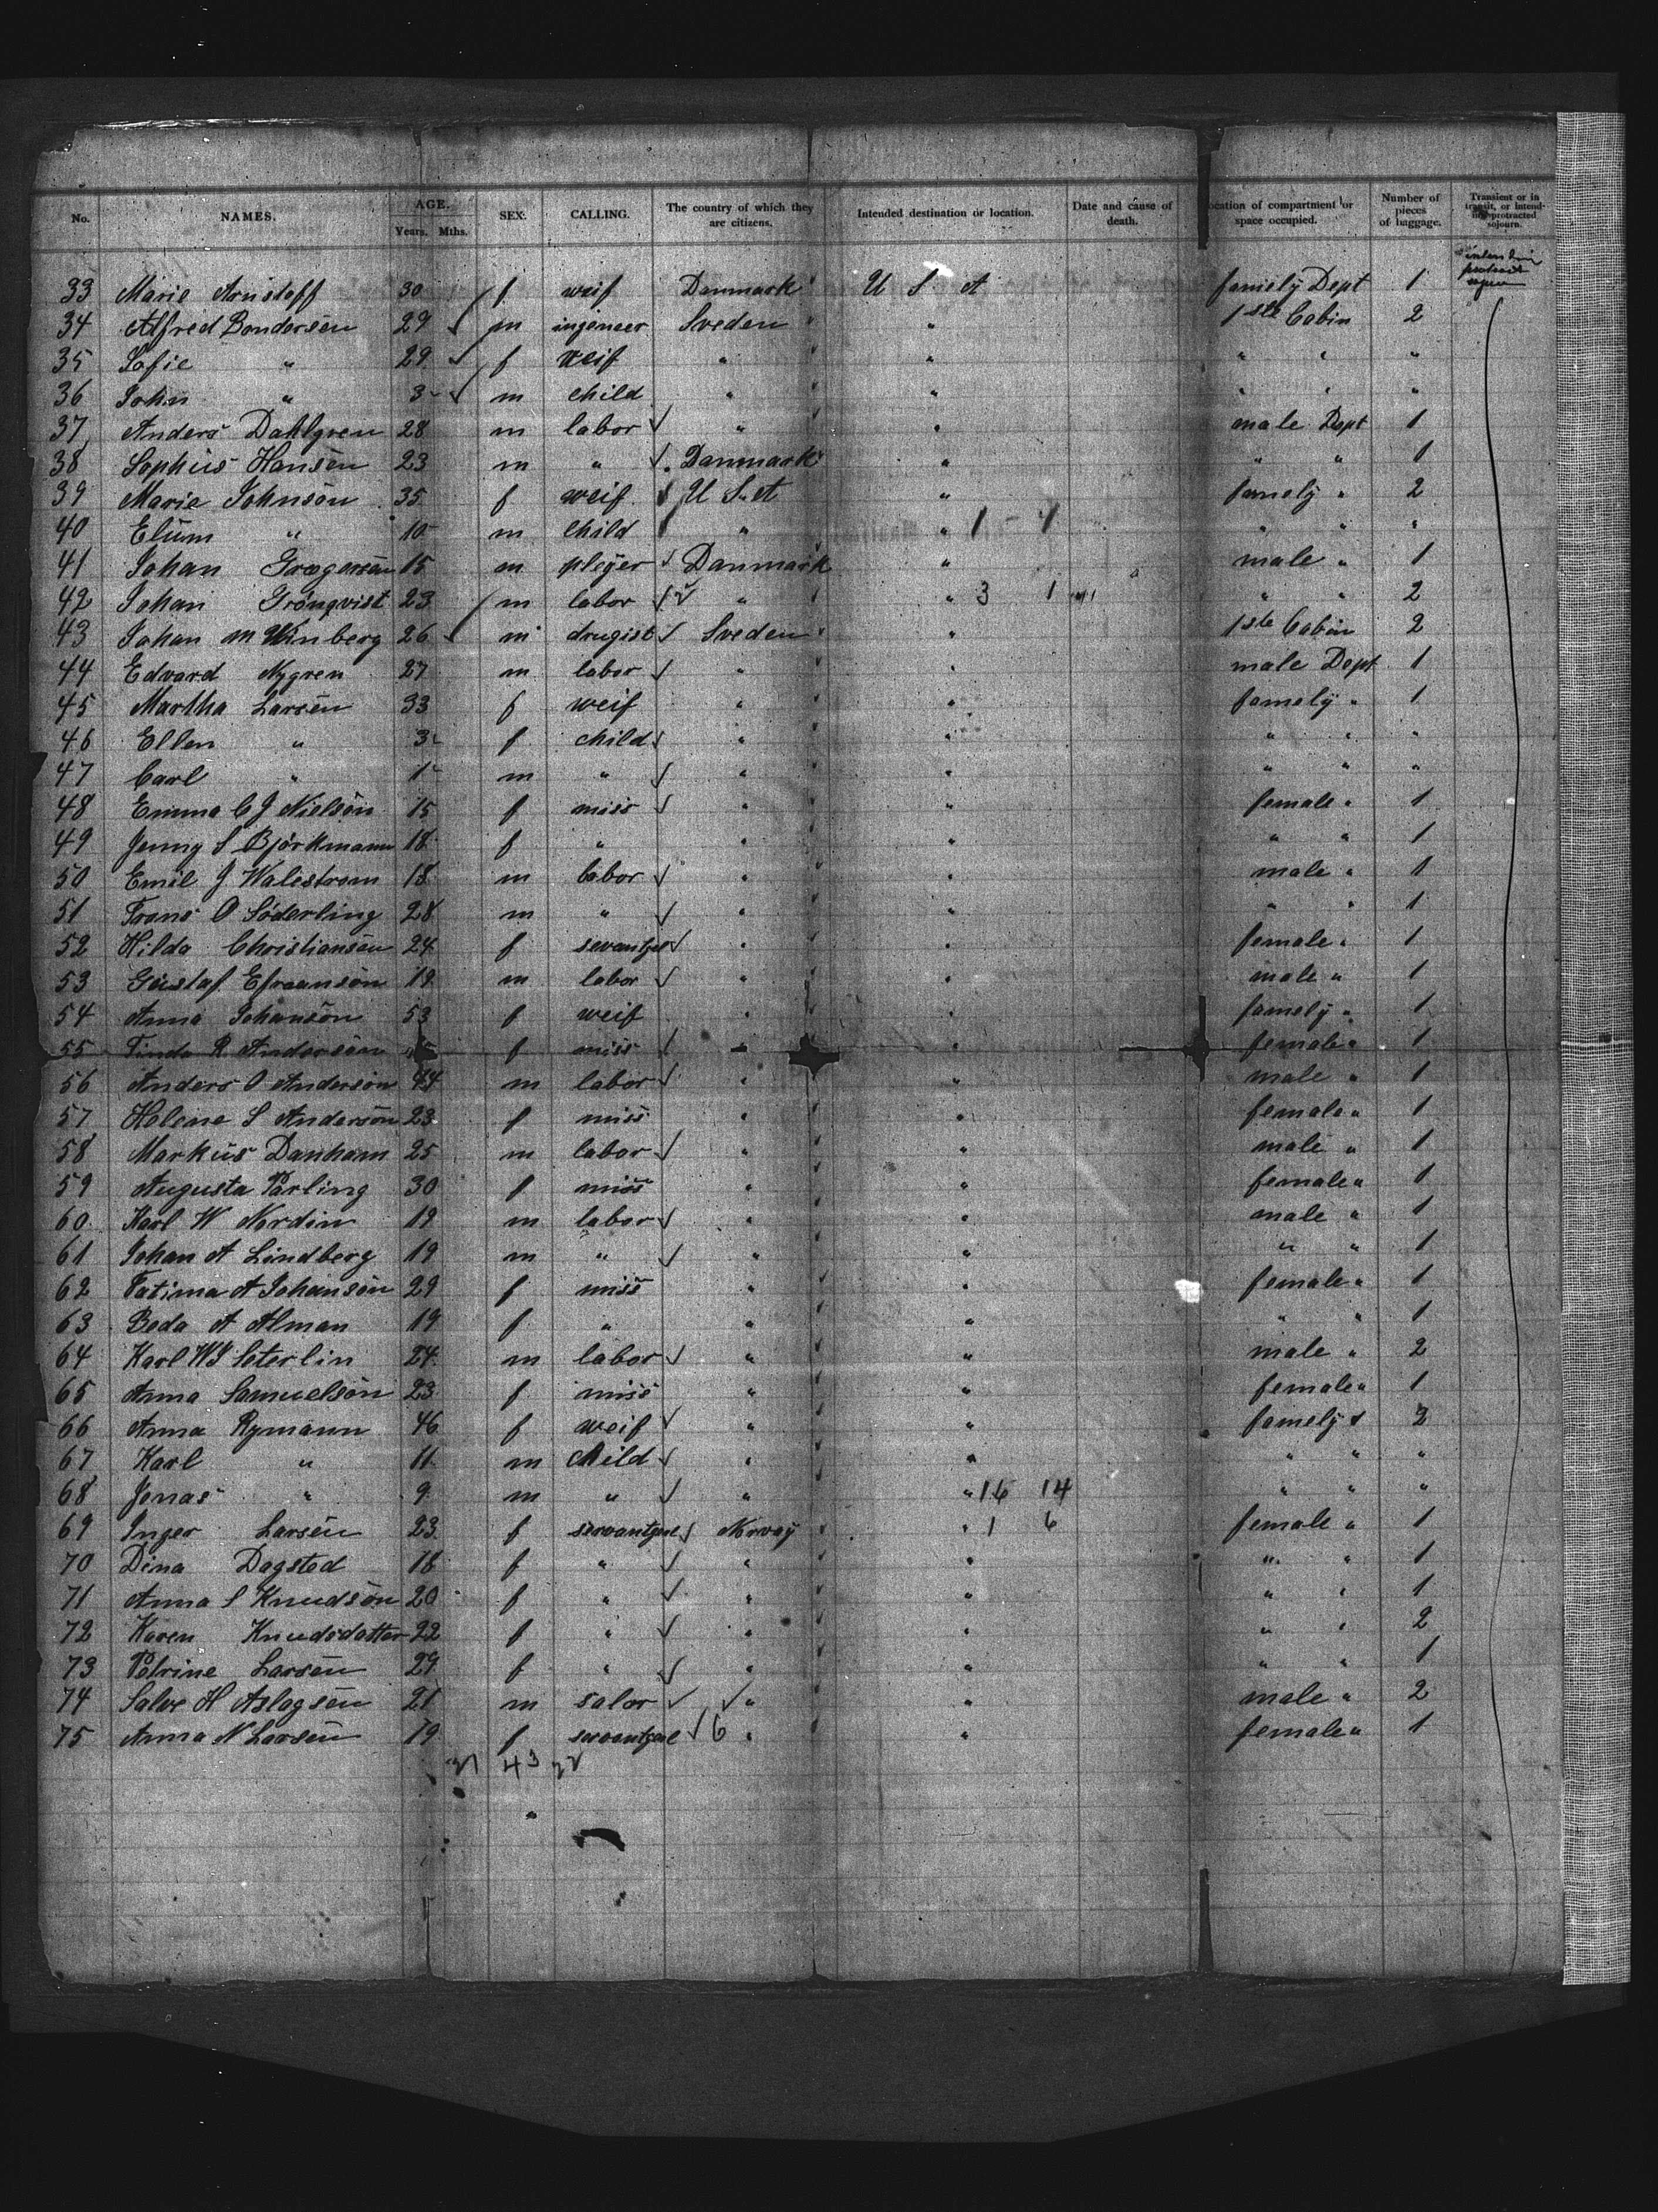 No. NAMES. AGE. Years. Mths. SEX. CALLING. The country of which they are citizens. Intended destination or location. Date and cause of death. ocation of compartment or space occupied. Number of pieces of baggage. Transient or in transit, or intending protracted sojourn.
33 Marie Arnstoff 30 f weif Danmark U S A famely Dept 1
34 Alfred Bondersen 29 m ingeneer Sveden " 1ste Cabin 2
35 Sofie " 29 f weif " " " " "
36 John " 3 m child " " " " "
37 Anders Dahlgren 28 m labor " " male Dept 1
38 Sophus Hansen 23 m " Danmark " " " 1
39 Marie Johnson 35 f weif U S A " famely " 2
40 Elum " 10 m child " " 1 - 1 " " "
41 Johan Grogersen 15 m pleyer Danmark " male " 1
42 Johan Grönqvist 23 m labor " " 3 1 " " 2
43 Johan m Winberg 26 m drugist Sveden " 1ste Cabin 2
44 Edvard Nygren 27 m labor " " male Dept 1
45 Martha Larsen 33 f weif " " famely " 1
46 Ellen " 3 f child " " " " "
47 Carl " 1 m " " " " " "
48 Emma C J Nielson 15 f miss " " female " 1
49 Jenny S Björkmann 18 f " " " " " 1
50 Emil J Walestrom 18 m labor " " male " 1
51 Frans O Söderling 28 m " " " " " 1
52 Hilda Christiansen 24 f sevantgerl " " female " 1
53 Gustaf Efraanson 19 m labor " " male " 1
54 Anna Johanson 53 f weif " " famely " 1
55 R Anderson f miss " " female " 1
56 Anders O Anderson 44 m labor " " male " 1
57 Helene S Anderson 23 f miss " " female " 1
58 Markus Danham 25 m labor " " male " 1
59 Augusta Parling 30 f miss " " female " 1
60 Karl W Nordin 19 m labor " " male " 1
61 Johan A Lindberg 19 m " " " " " 1
62 Fatima A Johanson 29 f miss " " female " 1
63 Beda A Alman 19 f " " " " " 1
64 Karl W J Seterlin 24 m labor " " male " 2
65 Anna Samuelson 23 f miss " " female " 1
66 Anna Rymann 46 f weif " " famely " 2
67 Karl " 11 m child " " " " "
68 Jonas " 9 m " " " 16 14 " " "
69 Inger Larsen 23 f servantgerl Norway " 1 6 female " 1
70 Dina Dagsted 18 f " " " " " 1
71 Anna S Knudson 20 f " " " " " 1
72 Karen Knudsdatter 22 f " " " " " 2
73 Petrine Larsen 29 f " " " " " 1
74 Salve H Aslagsen 21 m salor " " male " 2
75 Anna N Larsen 19 f servantgerl 6 " " female " 1
21 43 22